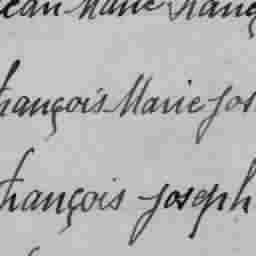 Jean Marie Franç
François Marie Jos
François Joseph